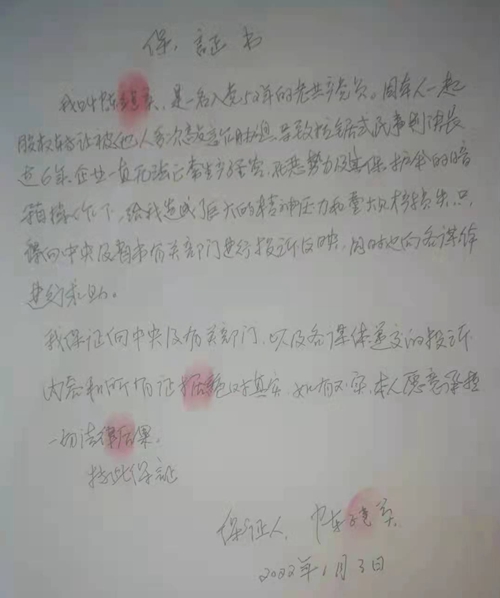 保证书
我叫陈，是一名入党50年的老共产党员。因本人一起
股权转让被他人多次恶意，导致拉锯式民事判决长
达6年，企业一直无法正常生产经营，在恶势力及其保护伞的暗
箱操作下，给我造成了巨大的精神压力和重大损失，只
得向中央及省市有关部门进行投诉反映，同时也向各媒体
进行求助。
我保证向中央及有关部门，以及各媒体递交的投诉
内容和所有证据绝对真实，如有不实，本人愿意承担
一切法律后果。
特此保证
保证人：陈
2022年1月3日